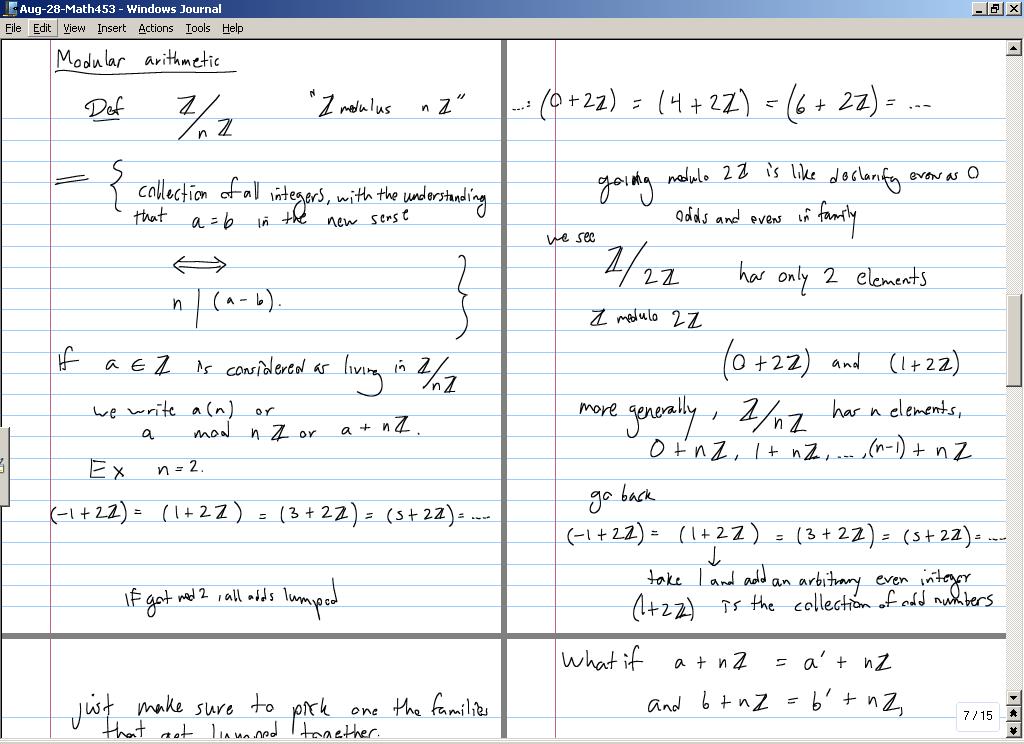 Aug-28-Math453 - Windows Journal
File Edit View Insert Actions Tools Help
Modular arithmetic
Def ℤ/nℤ "ℤ modulus nℤ"
= { collection of all integers, with the understanding
that a = b in the new sense
⟺
n | (a - b). }
If a ∈ ℤ is considered as living in ℤ/nℤ
we write a(n) or
a mod nℤ or a + nℤ.
Ex n = 2.
(-1+2ℤ) = (1+2ℤ) = (3+2ℤ) = (5+2ℤ) = ....
If got mod 2, all odds lumped
just make sure to pick one the families
that get lumped together.
...: (0+2ℤ) = (4+2ℤ) = (6+2ℤ) = ...
going modulo 2ℤ is like declarify even as 0
odds and evens in family
we see
ℤ/2ℤ has only 2 elements
ℤ modulo 2ℤ
(0+2ℤ) and (1+2ℤ)
more generally, ℤ/nℤ has n elements,
0+nℤ, 1+nℤ, ..., (n-1)+nℤ
go back
(-1+2ℤ) = (1+2ℤ) = (3+2ℤ) = (5+2ℤ) = ....
↓
take 1 and add an arbitrary even integer
(1+2ℤ) is the collection of odd numbers
What if a + nℤ = a' + nℤ
and b + nℤ = b' + nℤ,
7 / 15